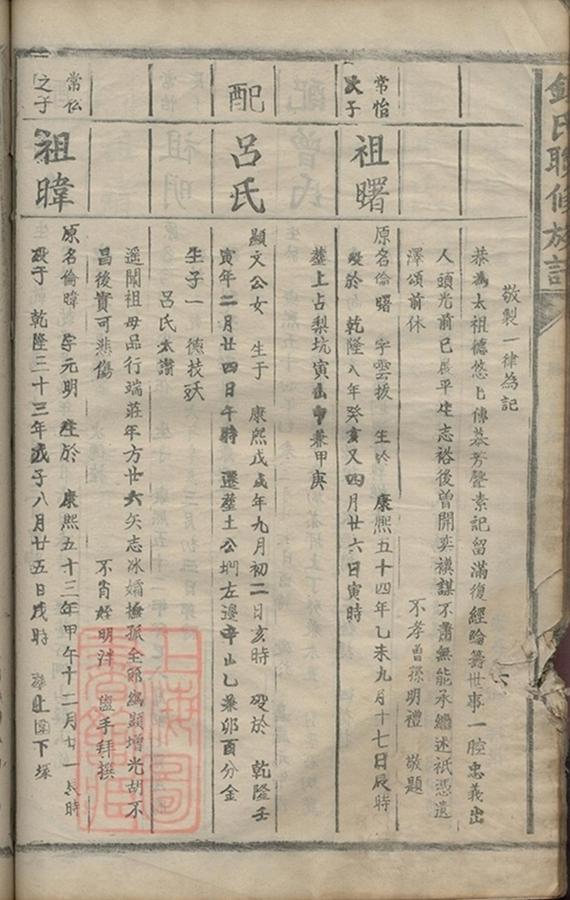 鍾氏聯修族譜
敬製一律為記
恭為太祖德悠上傳恭芳聲素記留滿復經綸籌世事一腔忠義出
人頭光前已展平生志裕後曾開奕禩謀不肅無能承繼述祇憑遺
澤頌前休 不孝曾孫明禮 敬題
常怡次子
祖曙
原名倫曙 字雲拔 生於 康熙五十四年乙未九月十七日辰時
歿於 乾隆八年癸亥又四月廿六日寅時
塟上占梨坑寅山申兼甲庚
配
呂氏
顯文公女 生于 康熙戊戌年九月初二日亥時 歿於 乾隆壬
寅年二月廿四日午時 遷塟土公堋左邊辛山乙兼卯酉分金
生子一 德技
呂氏太讚
遥聞祖母品行端莊年方廿六矢志冰孀撫孤全節為顯增光胡不
昌後實可悲傷 不肖姪明泮 盥手拜撰
常怡之子
祖暐
原名倫暐 字元明 生於 康熙五十三年甲午十二月廿一辰時
歿于 乾隆三十三年戊子八月廿五日戌時 下